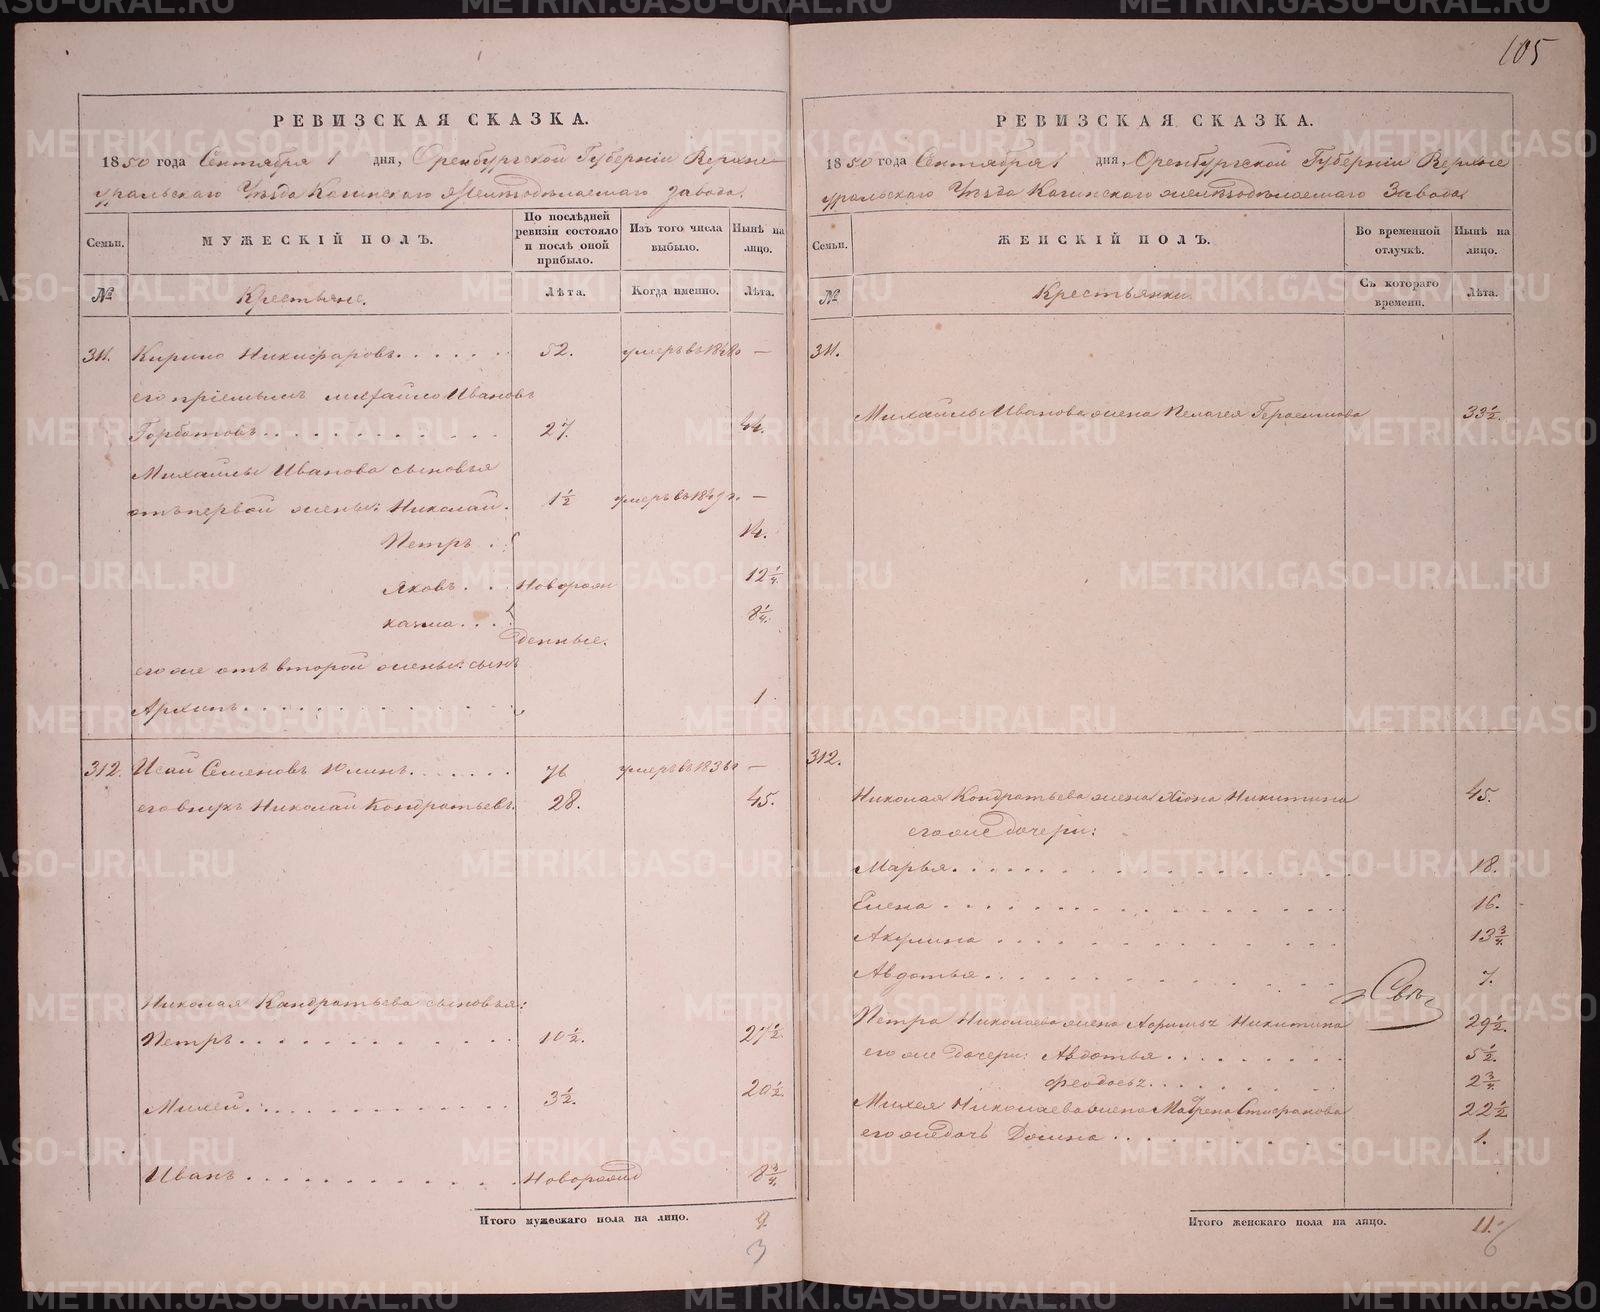 105
РЕВИЗСКАЯ СКАЗКА.
1850 года Сентября 1 дня, Оренбургской Губерніи Верхне-
уральскаго Уѣзда Кагинскаго желѣзодѣлаемаго завода.
Семьи.
МУЖЕСКІЙ ПОЛЪ.
По послѣдней
ревизіи состояло
и послѣ оной
прибыло.
Изъ того числа
выбыло.
Нынѣ на
лицо.
№
Крестьяне.
Лѣта.
Когда именно.
Лѣта.
311. Кирило Никифаровъ 52. умеръ въ 184 —
его пріемышъ михайло Ивановъ
Горбатовъ 27. 44.
Михайлы Иванова сыновья
отъ первой жены: Николай 1½ умеръ въ 18 —
Петръ 14.
Яковъ Новорож 12¼
8¼
денные.
его же отъ второй жены: сынъ
Архипъ 1
312. Исай Семеновъ Юлинъ 76 умеръ въ 1836 —
его внукъ Николай Кондратьевъ 28. 45.
Николая Кандратьева сыновья:
Петръ 10½. 27½
Михей 3½. 20½
Иванъ Новорожд 8¾
Итого мужескаго пола на лицо. 9
3
РЕВИЗСКАЯ СКАЗКА.
1850 года Сентября 1 дня, Оренбургской Губерніи Верхне
уральскаго Уѣзда Кагинскаго желѣзодѣлаемаго Завода
Семьи.
ЖЕНСКІЙ ПОЛЪ.
Во временной
отлучкѣ.
Нынѣ на
лицо.
№
Крестьянки.
Съ котораго
времени.
Лѣта.
311.
Михайлы Иванова жена Пелагея Герасимова 33½
312.
Николая Кондратьева жена Хіона Никитина 45.
его же дочери:
Марья 18.
Елена 16.
Акулина 13¾
Авдотья 7.
Петра Николаева жена Никитина 29½
его же дочери: Авдотья 5½
2¾
Михея Николаева жена Матрена Стафанова 22½
его же дочь Домна 1.
Итого женскаго пола на лицо. 11.
6
METRIKI.GASO-URAL.RU